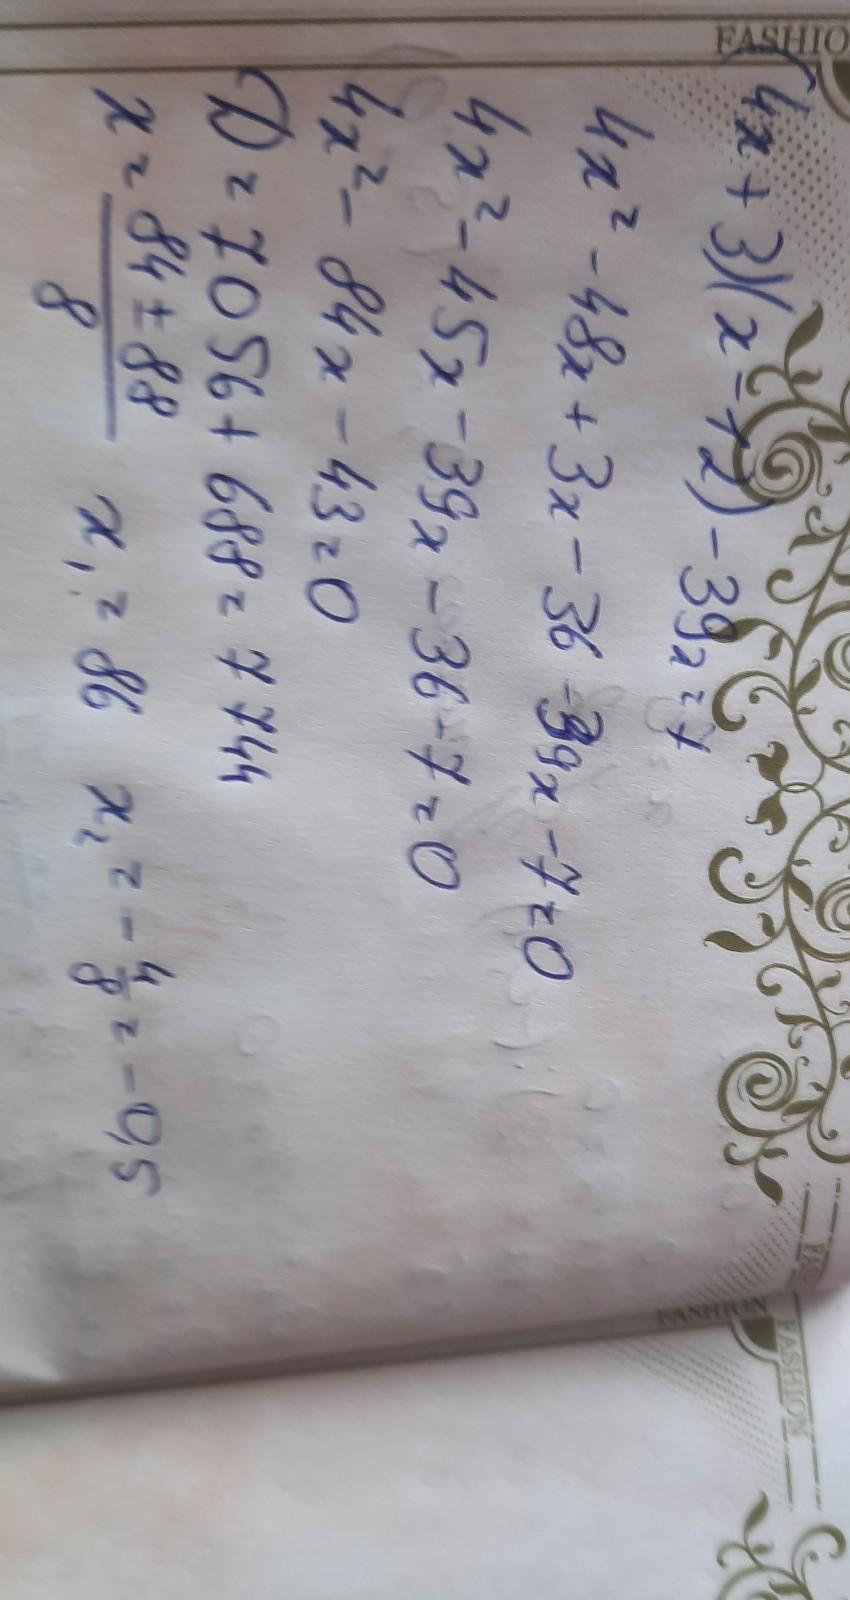 FASHIO
(4x+3)(x-12)-39x=7
4x²-48x+3x-36-39x-7=0
4x²-45x-39x-36-7=0
4x²-84x-43=0
D=7056+688=7744
x=84∓88/8 x₁=86 x₂=-4/8=-0,5
FASHION
FASHION